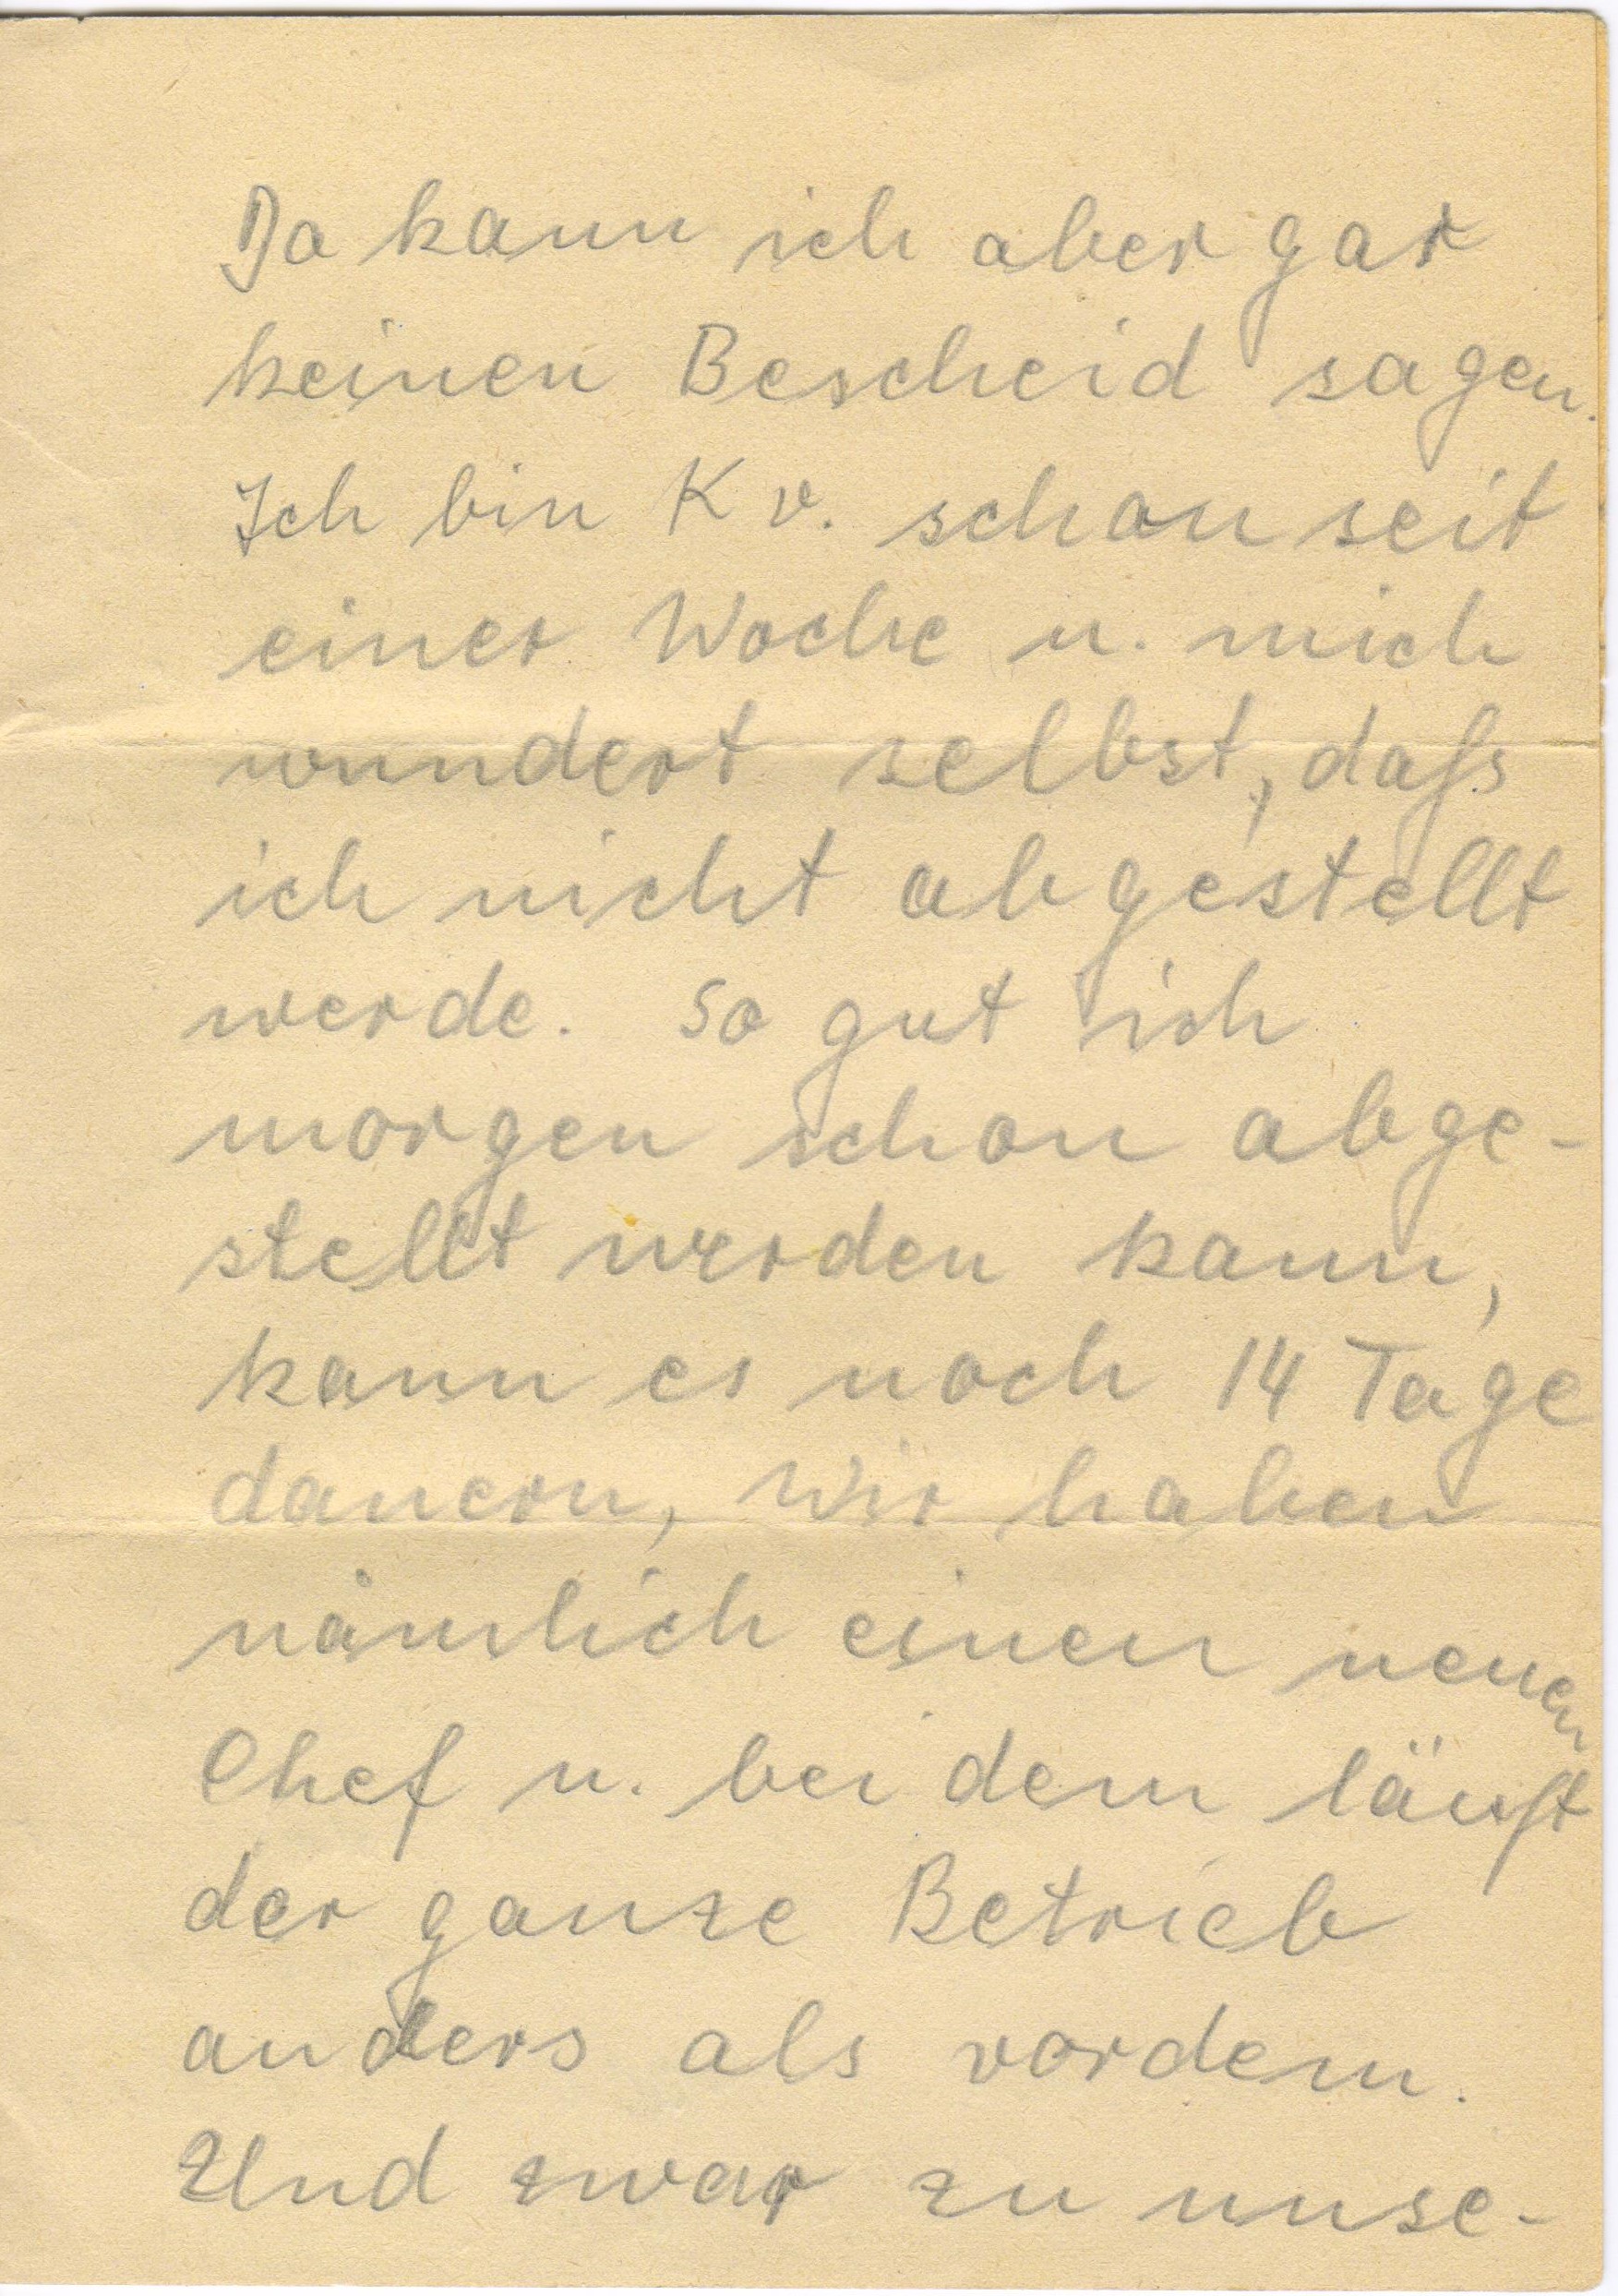 Da kann ich aber gar
keinen Bescheid sagen.
Ich bin K v. schon seit
einer Woche u. mich
wundert selbst, daß
ich nicht abgestellt
werde. So gut ich
morgen schon abge-
stellt werden kann,
kann es noch 14 Tage
dauern, Wir haben
nämlich einen neuen
Chef u. bei dem läuft
der ganze Betrieb
anders als vordem.
Und zwar zu unse-